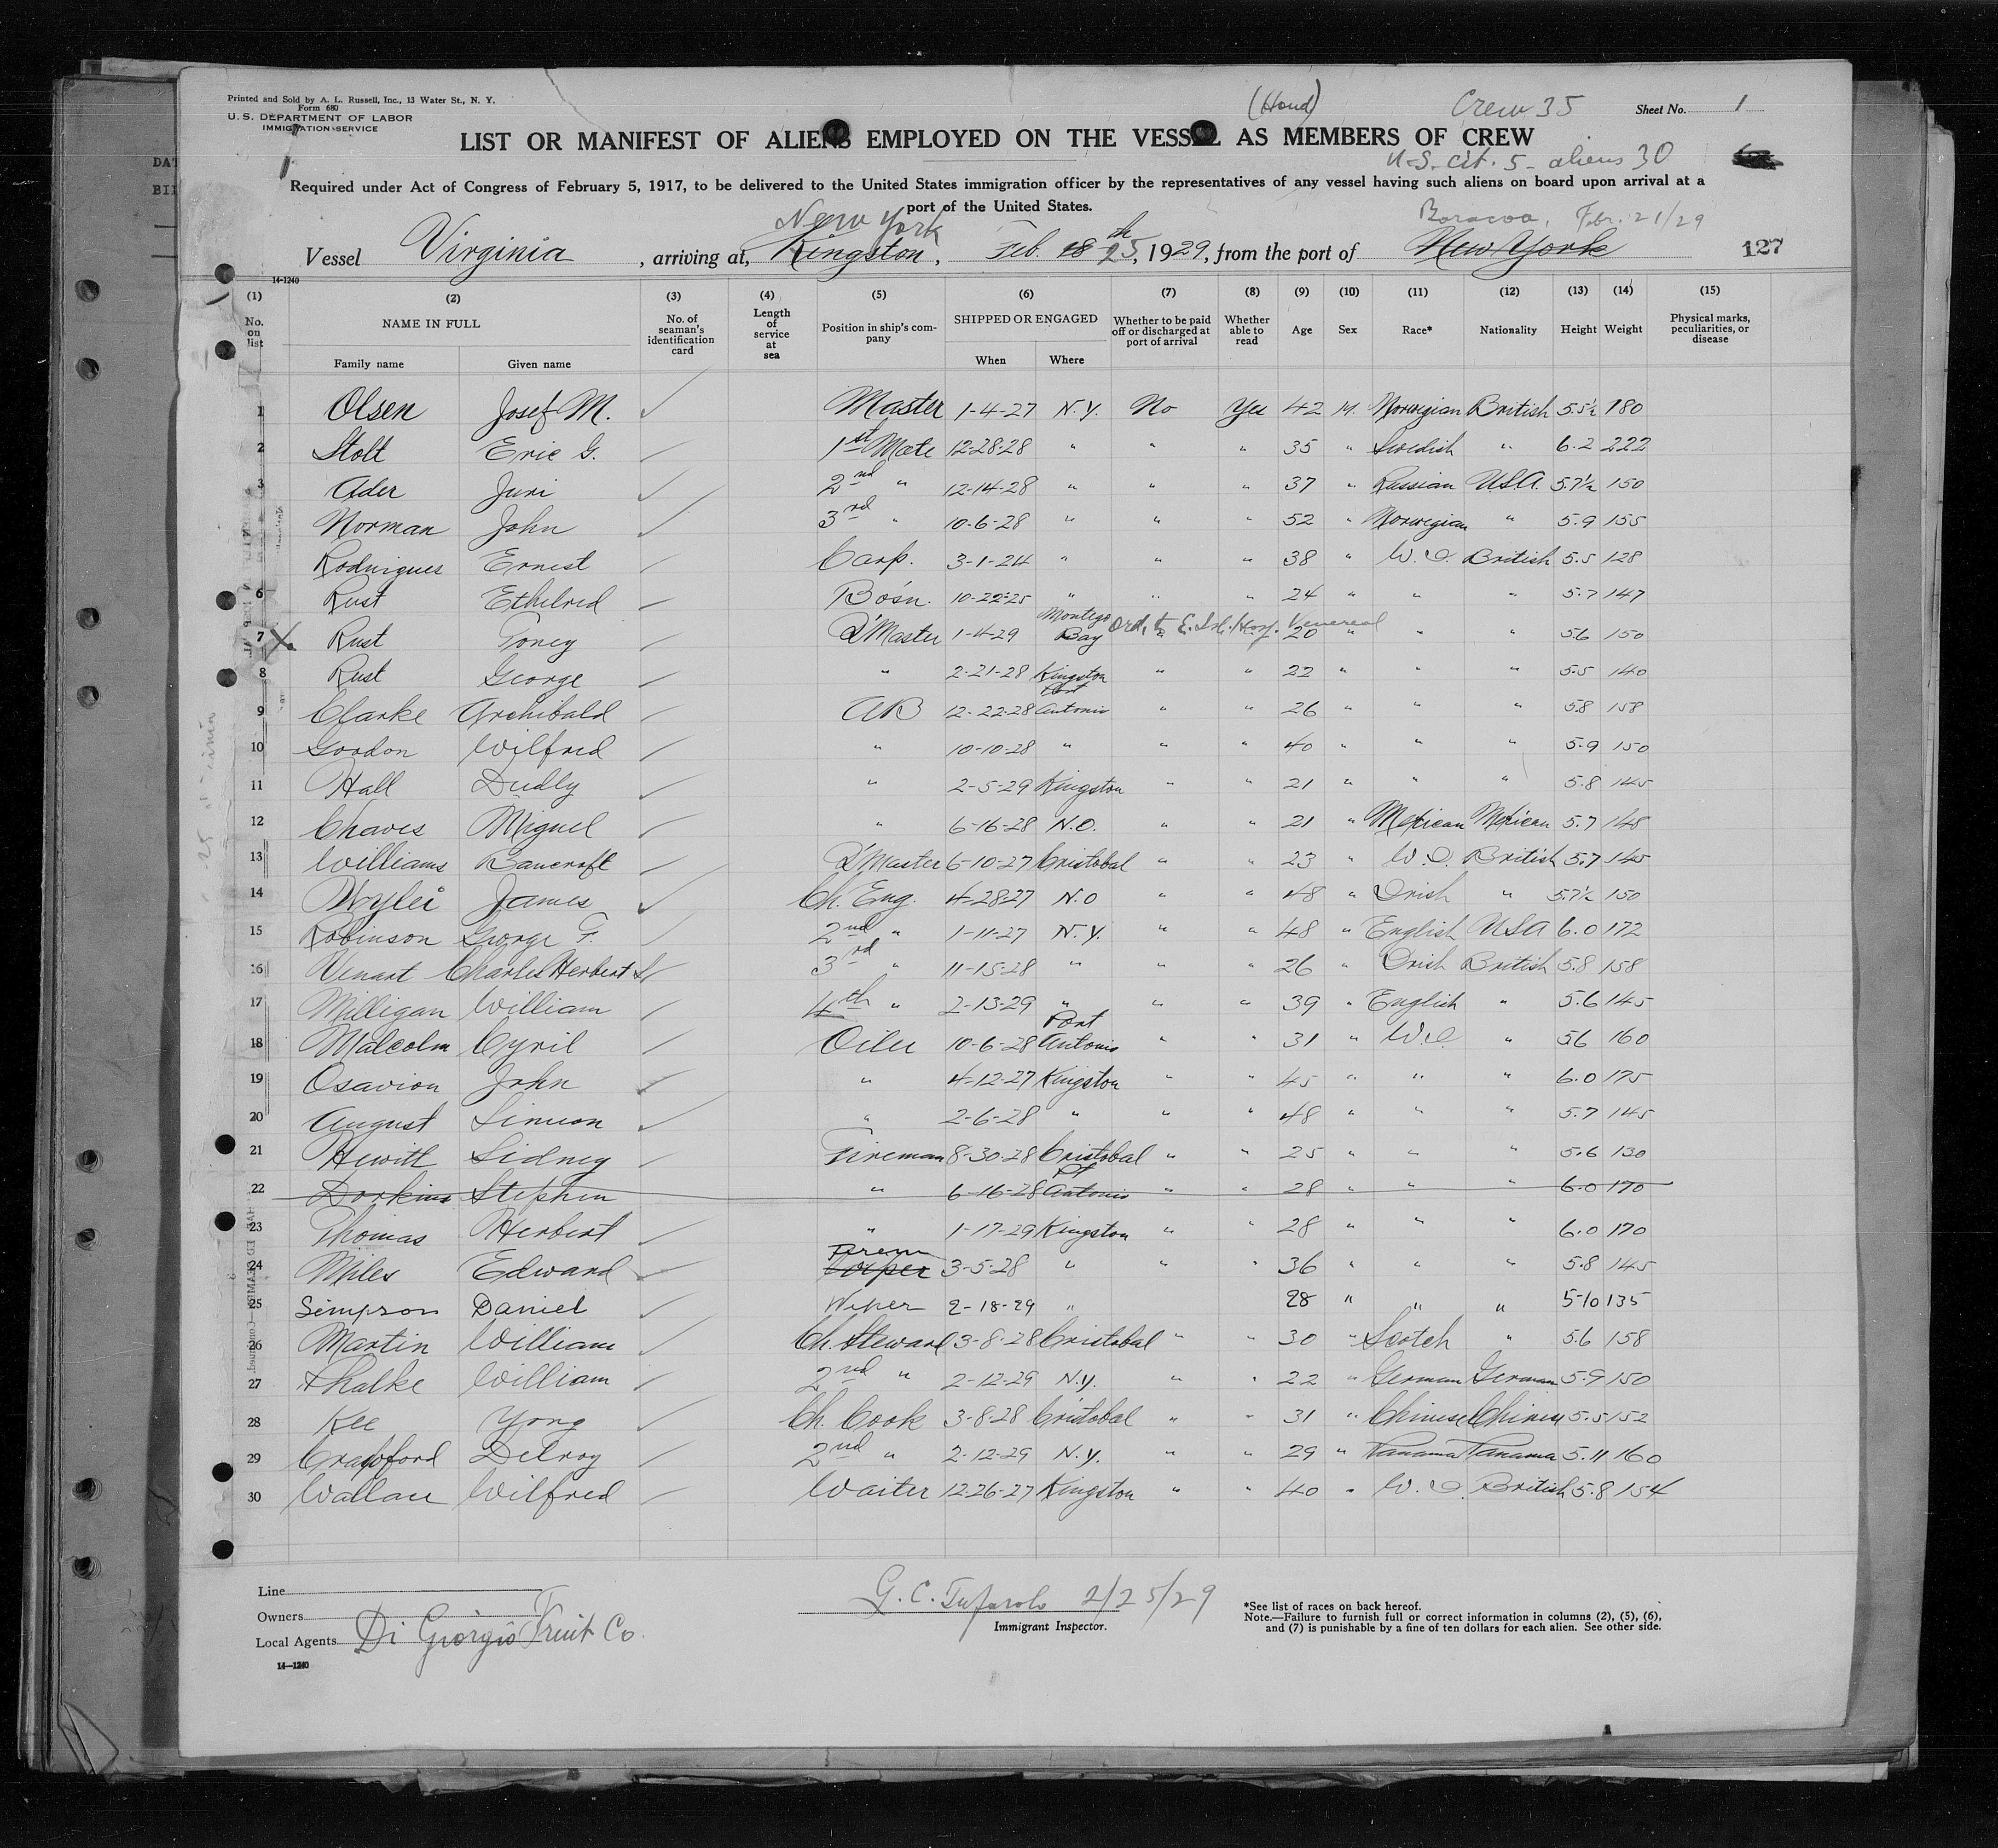 Printed and Sold by A. L. Russell, Inc., 13 Water St., N. Y.
Form 680
U. S. DEPARTMENT OF LABOR
IMMIGRATION SERVICE
(Hond) Crew 35 Sheet No. 1
LIST OR MANIFEST OF ALIENS EMPLOYED ON THE VESSEL AS MEMBERS OF CREW
U.S. Cit. 5 - aliens 30
Required under Act of Congress of February 5, 1917, to be delivered to the United States immigration officer by the representatives of any vessel having such aliens on board upon arrival at a
port of the United States.
New York Baracoa, Feb. 21/29
Vessel Virginia, arriving at, Kingston, Feb. 18 25th, 1929, from the port of New York 127
14-1240
(1) (2) (3) (4) (5) (6) (7) (8) (9) (10) (11) (12) (13) (14) (15)
No. on list NAME IN FULL No. of seaman's identification card Length of service at sea Position in ship's company SHIPPED OR ENGAGED Whether to be paid off or discharged at port of arrival Whether able to read Age Sex Race* Nationality Height Weight Physical marks, peculiarities, or disease
Family name Given name When Where
1 Olsen Josef M. ✓ Master 1-4-27 N.Y. No Yes 42 M. Norwegian British 5.5½ 180
2 Stolt Eric G. ✓ 1st Mate 12-28-28 " " " 35 " Swedish " 6.2 222
3 Ader Juri ✓ 2nd " 12-14-28 " " " 37 " Russian USA. 5.7½ 150
Norman John ✓ 3rd " 10-6-28 " " " 52 " Norwegian " 5.9 155
Rodnigues Ernest ✓ Carp. 3-1-24 " " " 38 " W.I. British 5.5 128
6 Rust Ethelred ✓ Bo'sn. 10-22-25 " " " 24 " " " 5.7 147
7 X Rust Toney ✓ Q'Master 1-4-29 Montego Bay Ord. to E. Isl. Hosp. Venereal 20 " " " 5.6 150
8 Rust George ✓ " 2-21-28 Kingston " " 22 " " " 5.5 140
9 Clarke Archibald ✓ AB 12-22-28 Port Antonio " " 26 " " " 5.8 158
10 Gordon Wilfred ✓ " 10-10-28 " " " 40 " " " 5.9 150
11 Hall Dudly ✓ " 2-5-29 Kingston " " 21 " " " 5.8 145
12 Chaves Miguel ✓ " 6-16-28 N.O. " " 21 " Mexican Mexican 5.7 148
13 Williams Bancroft ✓ Q'Master 6-10-27 Cristobal " " 23 " W.I. British 5.7 145
14 James ✓ Ch. Eng. 4-28-27 N.O " " 48 " Irish " 5.7½ 150
15 Robinson George F. ✓ 2nd " 1-11-27 N.Y. " " 48 " English USA 6.0 172
16 Venart Charles Herbert ✓ 3rd " 11-15-28 " " " 26 " Irish British 5.8 158
17 Milligan William ✓ 4th " 2-13-29 " " " 39 " English " 5.6 145
18 Malcolm Cyril ✓ Oiler 10-6-28 Port Antonio " " 31 " W.I. " 5.6 160
19 Osavion John ✓ " 4-12-27 Kingston " " 45 " " " 6.0 175
20 August Simeon ✓ " 2-6-28 " " " 48 " " " 5.7 145
21 Hewitt Sidney ✓ Fireman 8-30-28 Cristobal " " 25 " " " 5.6 130
22 Dorkins Stephen " 6-16-28 Pt Antonio " " 28 " " " 6.0 170
23 Thomas Herbert ✓ " 1-17-29 Kingston " " 28 " " " 6.0 170
24 Miles Edward ✓ Firem Wiper 3-5-28 " " " 36 " " " 5.8 145
25 Simpson Daniel ✓ Wiper 2-18-29 " 28 " " " 5-10 135
26 Martin William ✓ Ch. Steward 3-8-28 Cristobal " " 30 " Scotch " 5.6 158
27 Thalke William ✓ 2nd " 2-12-29 N.Y. " " 22 " German German 5.9 150
28 Kee Yong ✓ Ch. Cook 3-8-28 Cristobal " " 31 " Chinese Chinese 5.5 152
29 Crawford Delroy ✓ 2nd " 2-12-29 N.Y. " " 29 " Panama Panama 5.11 160
30 Wallace Wilfred ✓ Waiter 12-26-27 Kingston " " 40 " W.I. British 5.8 154
Line
Owners
Local Agents Di Giorgio Fruit Co.
14-1240
G. C. 2/25/29
Immigrant Inspector.
*See list of races on back hereof.
Note.—Failure to furnish full or correct information in columns (2), (5), (6),
and (7) is punishable by a fine of ten dollars for each alien. See other side.